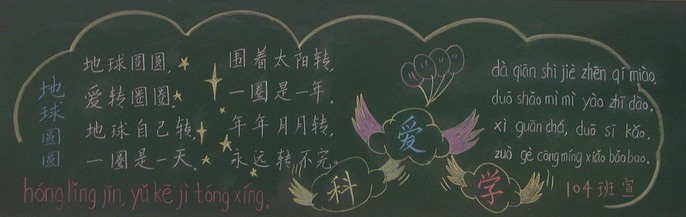 地球圆圆
地球圆圆，
爱转圈圈。
地球自己转，
一圈是一天。
围着太阳转，
一圈是一年。
年年月月转，
永远转不完。
hóng lǐng jīn, yǔ kē jì tóng xíng。
爱
科
学
dà qiān shì jiè zhēn qí miào,
duō shǎo mì mì yào zhī dào。
xì guān chá, duō sī kǎo,
zuò gè cōng míng xiǎo bǎo bao。
104班宣